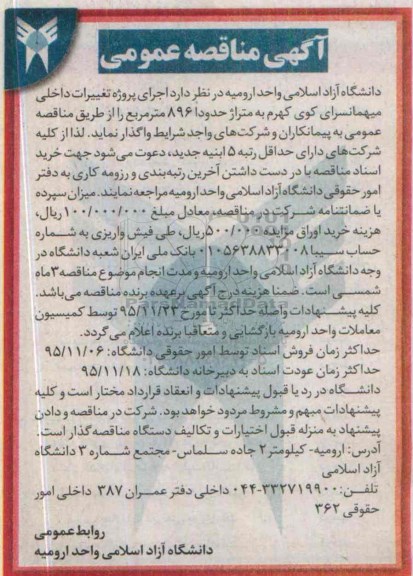 آگهی مناقصه عمومی
دانشگاه آزاد اسلامی واحد ارومیه در نظر دارد اجرای پروژه تغییرات داخلی
میهمانسرای کوی کهرم به متراژ حدودا ۸۹۶ مترمربع را از طریق مناقصه
عمومی به پیمانکاران و شرکت‌های واجد شرایط واگذار نماید. لذا از کلیه
شرکت‌های دارای حداقل رتبه ۵ ابنیه جدید، دعوت می‌شود جهت خرید
اسناد مناقصه با در دست داشتن آخرین رتبه‌بندی و رزومه کاری به دفتر
امور حقوقی دانشگاه آزاد اسلامی واحد ارومیه مراجعه نمایند. میزان سپرده
یا ضمانتنامه شرکت در مناقصه، معادل مبلغ ۱۰۰/۰۰۰/۰۰۰ ریال،
هزینه خرید اوراق مزایده ۵۰۰/۰۰۰ ریال، طی فیش واریزی به شماره
حساب سیبا ۰۱۰۵۶۳۸۸۳۳۰۰۸ بانک ملی ایران شعبه دانشگاه در
وجه دانشگاه آزاد اسلامی واحد ارومیه و مدت انجام موضوع مناقصه ۳ ماه
شمسی است. ضمنا هزینه درج آگهی برعهده برنده مناقصه می‌باشد.
کلیه پیشنهادات واصله حداکثر تا مورخ ۹۵/۱۱/۲۳ توسط کمیسیون
معاملات واحد ارومیه بازگشایی و متعاقبا برنده اعلام می گردد.
حداکثر زمان فروش اسناد توسط امور حقوقی دانشگاه: ۹۵/۱۱/۰۶
حداکثر زمان عودت اسناد به دبیرخانه دانشگاه: ۹۵/۱۱/۱۸
دانشگاه در رد یا قبول پیشنهادات و انعقاد قرارداد مختار است و کلیه
پیشنهادات مبهم و مشروط مردود خواهد بود. شرکت در مناقصه و دادن
پیشنهاد به منزله قبول اختیارات و تکالیف دستگاه مناقصه گذار است.
آدرس: ارومیه- کیلومتر ۲ جاده سلماس- مجتمع شماره ۳ دانشگاه
آزاد اسلامی
تلفن: ۳۳۲۷۱۹۹۰۰-۰۴۴ داخلی دفتر عمران ۳۸۷ داخلی امور
حقوقی ۳۶۲
روابط عمومی
دانشگاه آزاد اسلامی واحد ارومیه